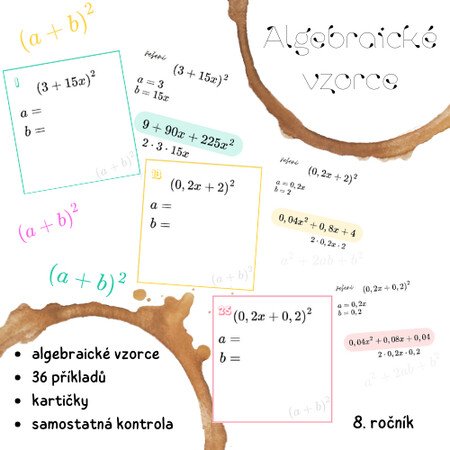 (a + b)²
Algebraické
vzorce
1
(3 + 15x)²
a =
b =
(a + b)²
řešení
(3 + 15x)²
a = 3
b = 15x
9 + 90x + 225x²
2 · 3 · 15x
(0, 2x + 2)²
a =
b =
(a + b)²
řešení
(0, 2x + 2)²
a = 0, 2x
b = 2
0, 04x² + 0, 8x + 4
2 · 0, 2x · 2
a² + 2ab + b²
(a + b)²
(a + b)²
36
(0, 2x + 0, 2)²
a =
b =
(a + b)²
řešení
(0, 2x + 0, 2)²
a = 0, 2x
b = 0, 2
0, 04x² + 0, 08x + 0, 04
2 · 0, 2x · 0, 2
a² + 2ab + b²
• algebraické vzorce
• 36 příkladů
• kartičky
• samostatná kontrola
8. ročník